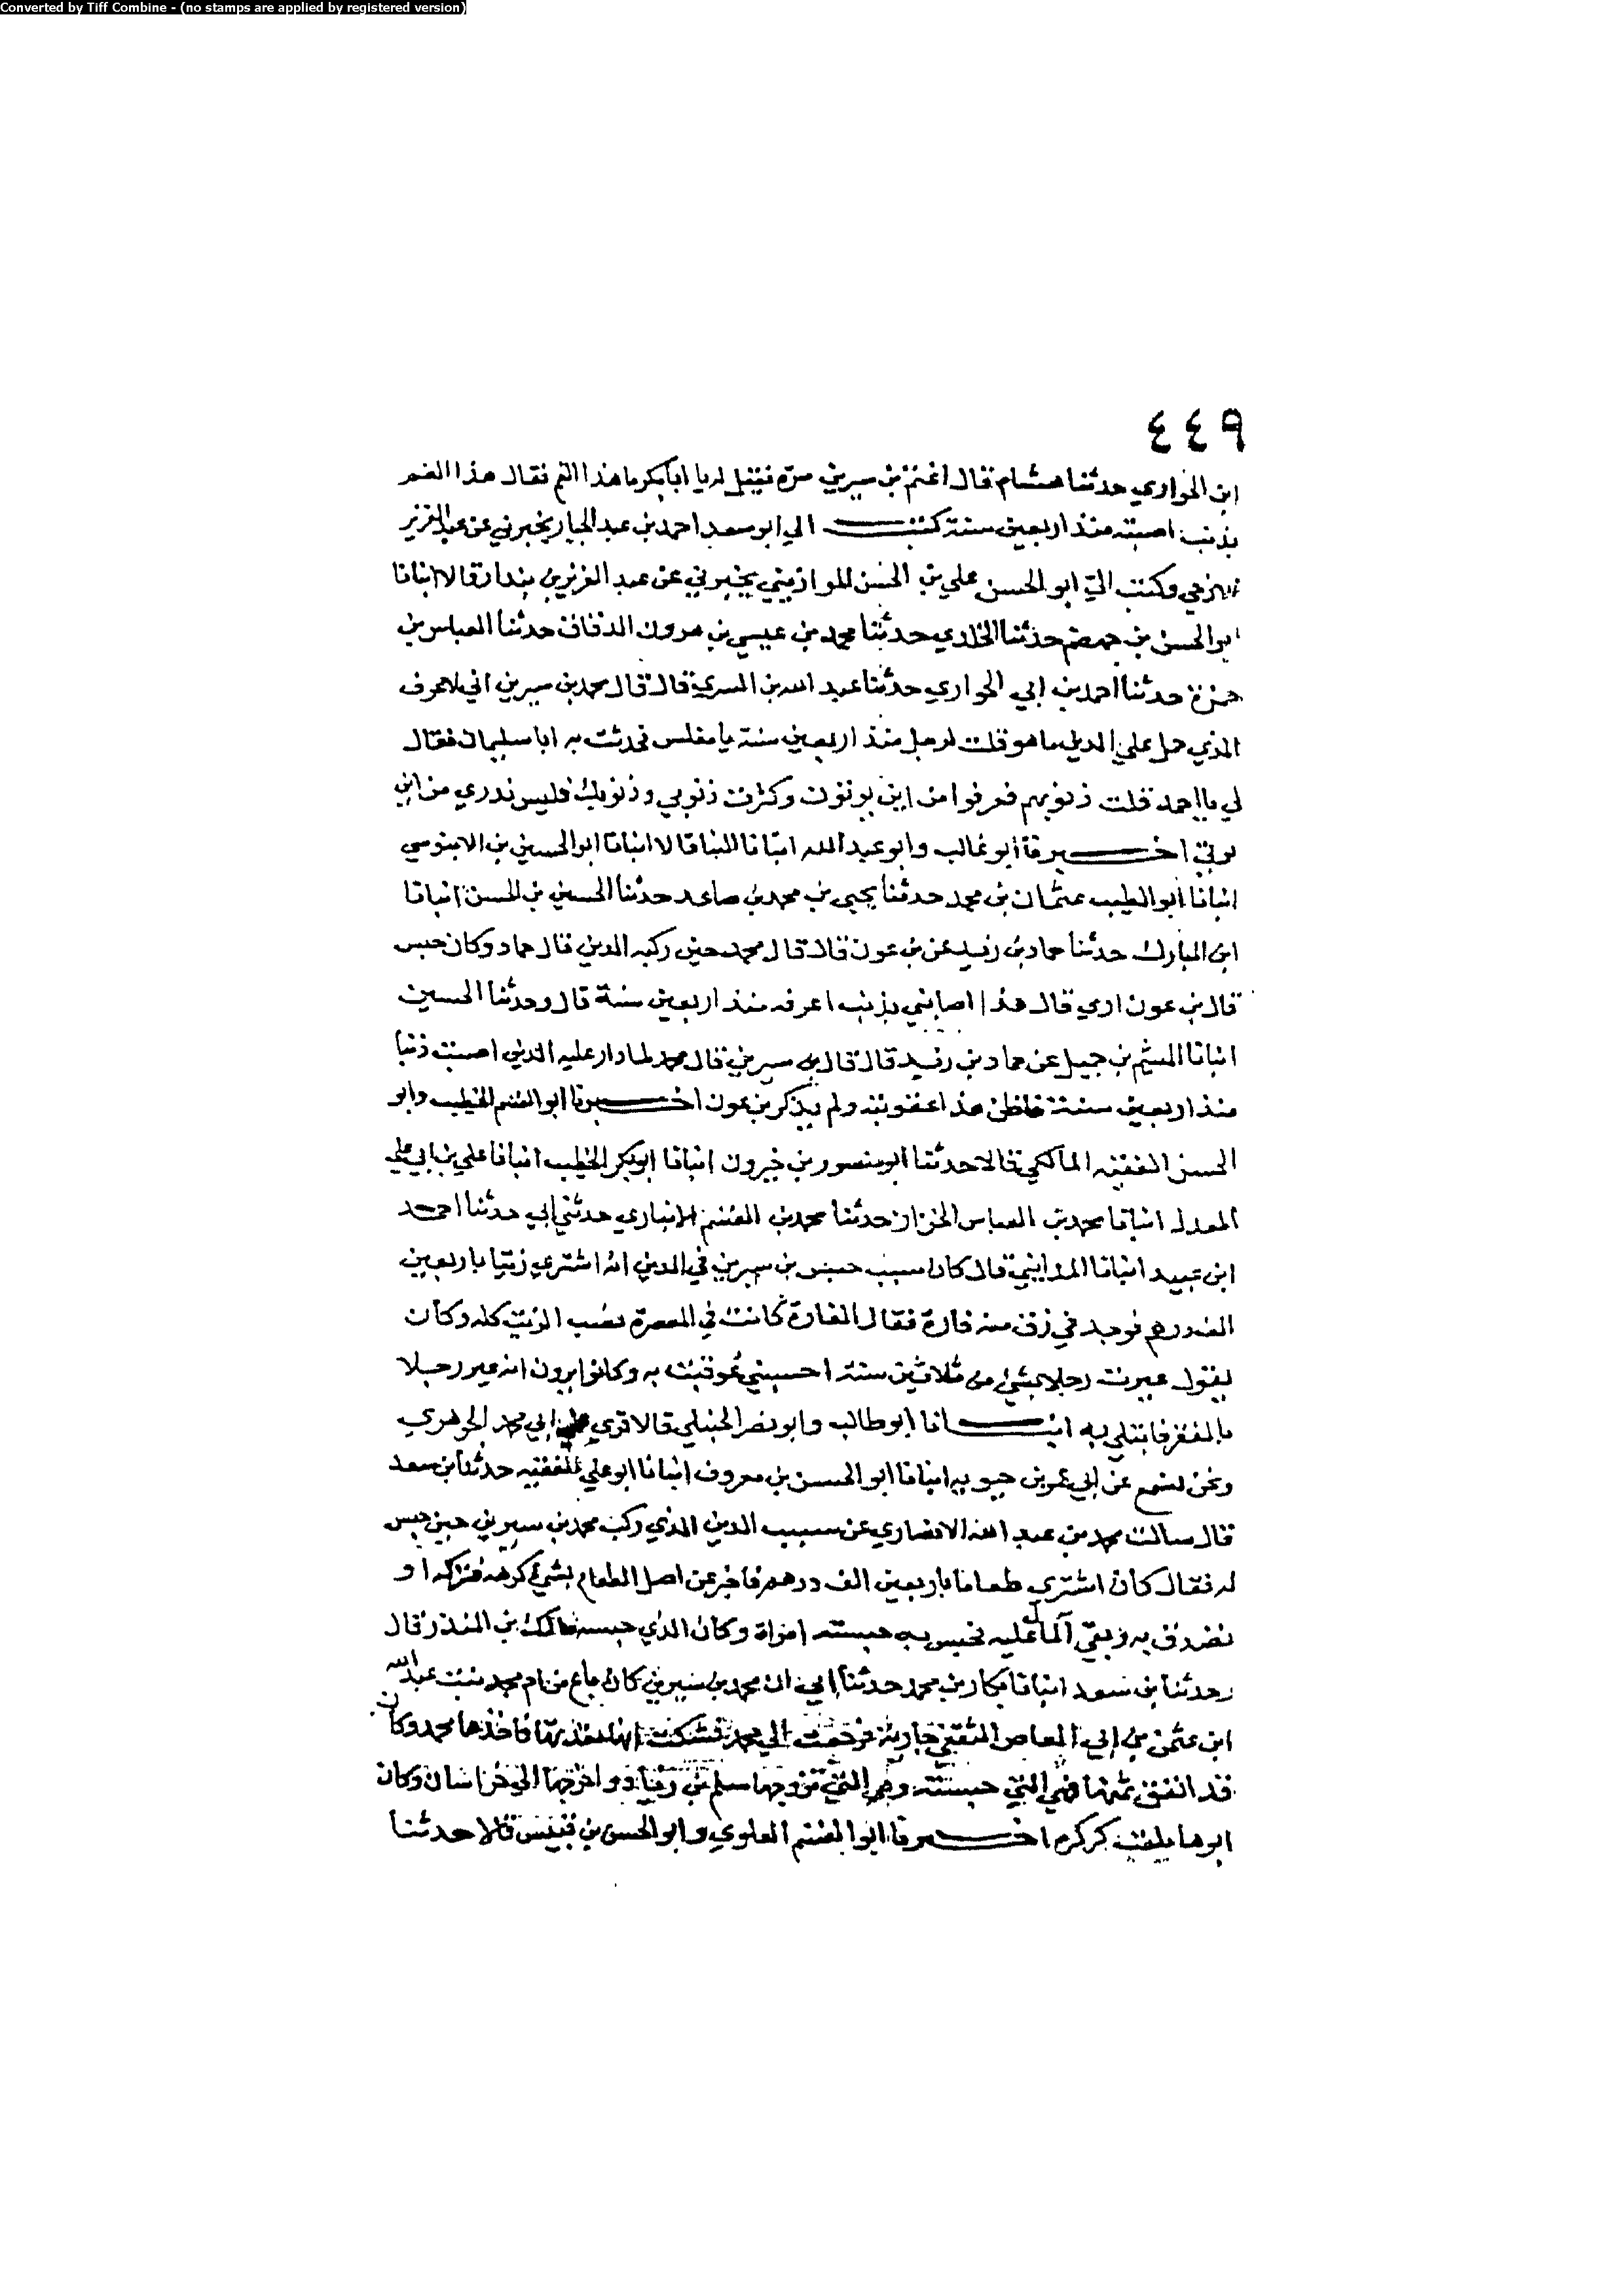 Converted by Tiff Combine - (no stamps are applied by registered version)
٤٤٩
ابن الحواري حدثنا هشام قال اغتم بن سيرين مرة فقيل له يا ابا بكر ما هذا الغم فقال هذا الغم
بذنب اصبته منذ اربعين سنة كتب الي ابو سعد احمد بن عبد الجبار يخبرني عن عبد العزيز
الازجي وكتب الي ابو الحسن علي بن الحسن الموازيني يخبرني عن عبد العزيز بن بندار قالا انبانا
ابو الحسن بن جهضم حدثنا الخلدي حدثنا محمد بن عيسي بن هرون الدقاق حدثنا العباس بن
حمزة حدثنا احمد بن ابي الحواري حدثنا عبد الله بن السري قال قال محمد بن سيرين اني لاعرف
الذي حمل علي الدين ما هو قلت لرجل منذ اربعين سنة يا مفلس فحدثت به ابا سليمان فقال
لي يا احمد قلت ذنوبهم فعرفوا من اين يوتون وكثرت ذنوبي وذنوبك فليس ندري من اين
نوتي اخبرنا ابو غالب وابو عبد الله ابنا البنا قالا انبانا ابو الحسين بن الابنوسي
انبانا ابو الطيب عثمان بن محمد حدثنا يحيي بن محمد بن صاعد حدثنا الحسين بن الحسن انبانا
ابن المبارك حدثنا حماد بن زيد عن بن عون قال قال محمد حين ركبه الدين قال حماد وكان حبس
قال بن عون اري قال هذا اصابني بذنب اعرفه منذ اربعين سنة قال وحدثنا الحسين
انبانا الهيثم بن جميل عن حماد بن زيد قال قال بن سيرين قال محمد لما دار عليه الدين اصبت ذنبا
منذ اربعين سنة فاظن هذا عقوبته ولم يذكر بن عون اخبرنا ابو القسم الخطيب وابو
الحسن الفقيه المالكي قالا حدثنا ابو منصور بن خيرون انبانا ابو بكر الخطيب انبانا علي بن ابي علي
المعدل انبانا محمد بن العباس الخزاز حدثنا محمد بن القسم الانباري حدثني ابي حدثنا احمد
ابن عبيد انبانا المدايني قال كان سبب حبس بن سيرين في الدين انه اشتري زيتا باربعين
الف درهم فوجد في زق منه فارة فقال الفارة كانت في المعصرة فصب الزيت كله وكان
يقول عيرت رجلا بشئ من ثلاثين سنة احسبني عوقبت به وكانوا يرون انه عير رجلا
بالفقر فابتلي به انبانا ابو طالب وابو نصر الحنبلي قالا قري علي ابي محمد الجوهري
ونحن نسمع عن ابي عمر بن حيويه انبانا ابو الحسن بن معروف انبانا ابو علي الفقيه حدثنا بن سعد
قال سالت محمد بن عبد الله الانصاري عن سبب الدين الذي ركب محمد بن سيرين حين حبس
له فقال كان اشتري طعاما باربعين الف درهم فاخبر عن اصل الطعام بشئ كرهه فتركه او
تصدق به وبقي المال عليه فحبس به حبسته امراة وكان الذي حبسه مالك بن المنذر قال
وحدثنا بن سعد انبانا بكار بن محمد حدثنا ابي ان محمد بن سيرين كان باع من ام محمد بنت عبد الله
ابن عثمن بن ابي العاص الثقفي جارية فرجعت الي محمد فشكت انها تعذبها فاخذها محمد وكان
قد انفق ثمنها فهي التي حبسته وهي التي تزوجها سلم بن زياد واخرجها الي خراسان وكان
ابوها يلقب كركرم اخبرنا ابو القسم العلوي وابو الحسن بن قبيس قالا حدثنا